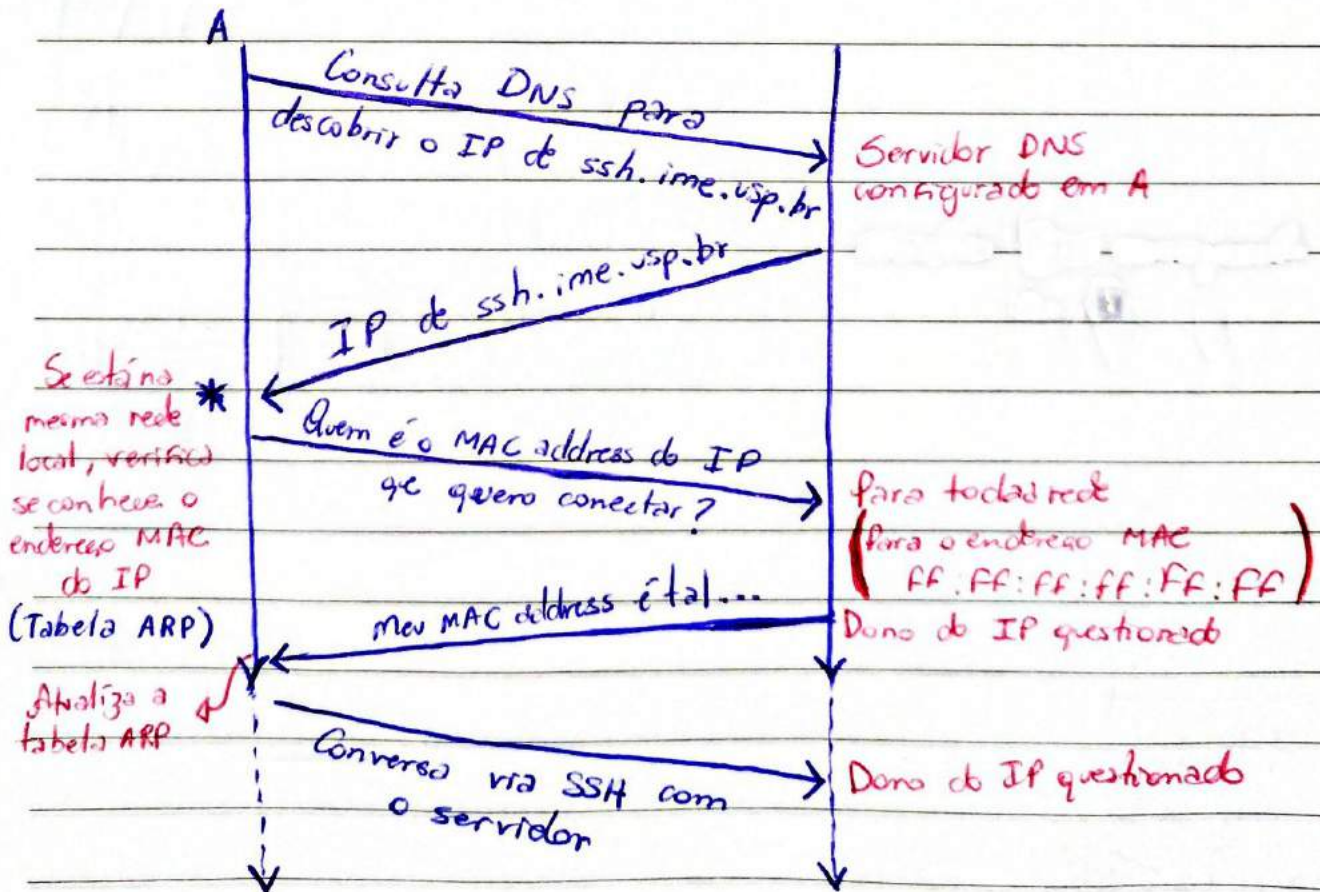 A
Consulta DNS para
descobrir o IP de ssh.ime.usp.br
Servidor DNS
configurado em A
IP de ssh.ime.usp.br
Se está na
mesma rede
local, verifica
se conhece o
endereço MAC
do IP
(Tabela ARP)
*
Quem é o MAC address do IP
qe quero conectar?
Para toda a rede
(Para o endereço MAC
ff:ff:ff:ff:ff:ff)
Meu MAC address é tal...
Dono do IP questionado
Atualiza a
tabela ARP
Conversa via SSH com
o servidor
Dono do IP questionado